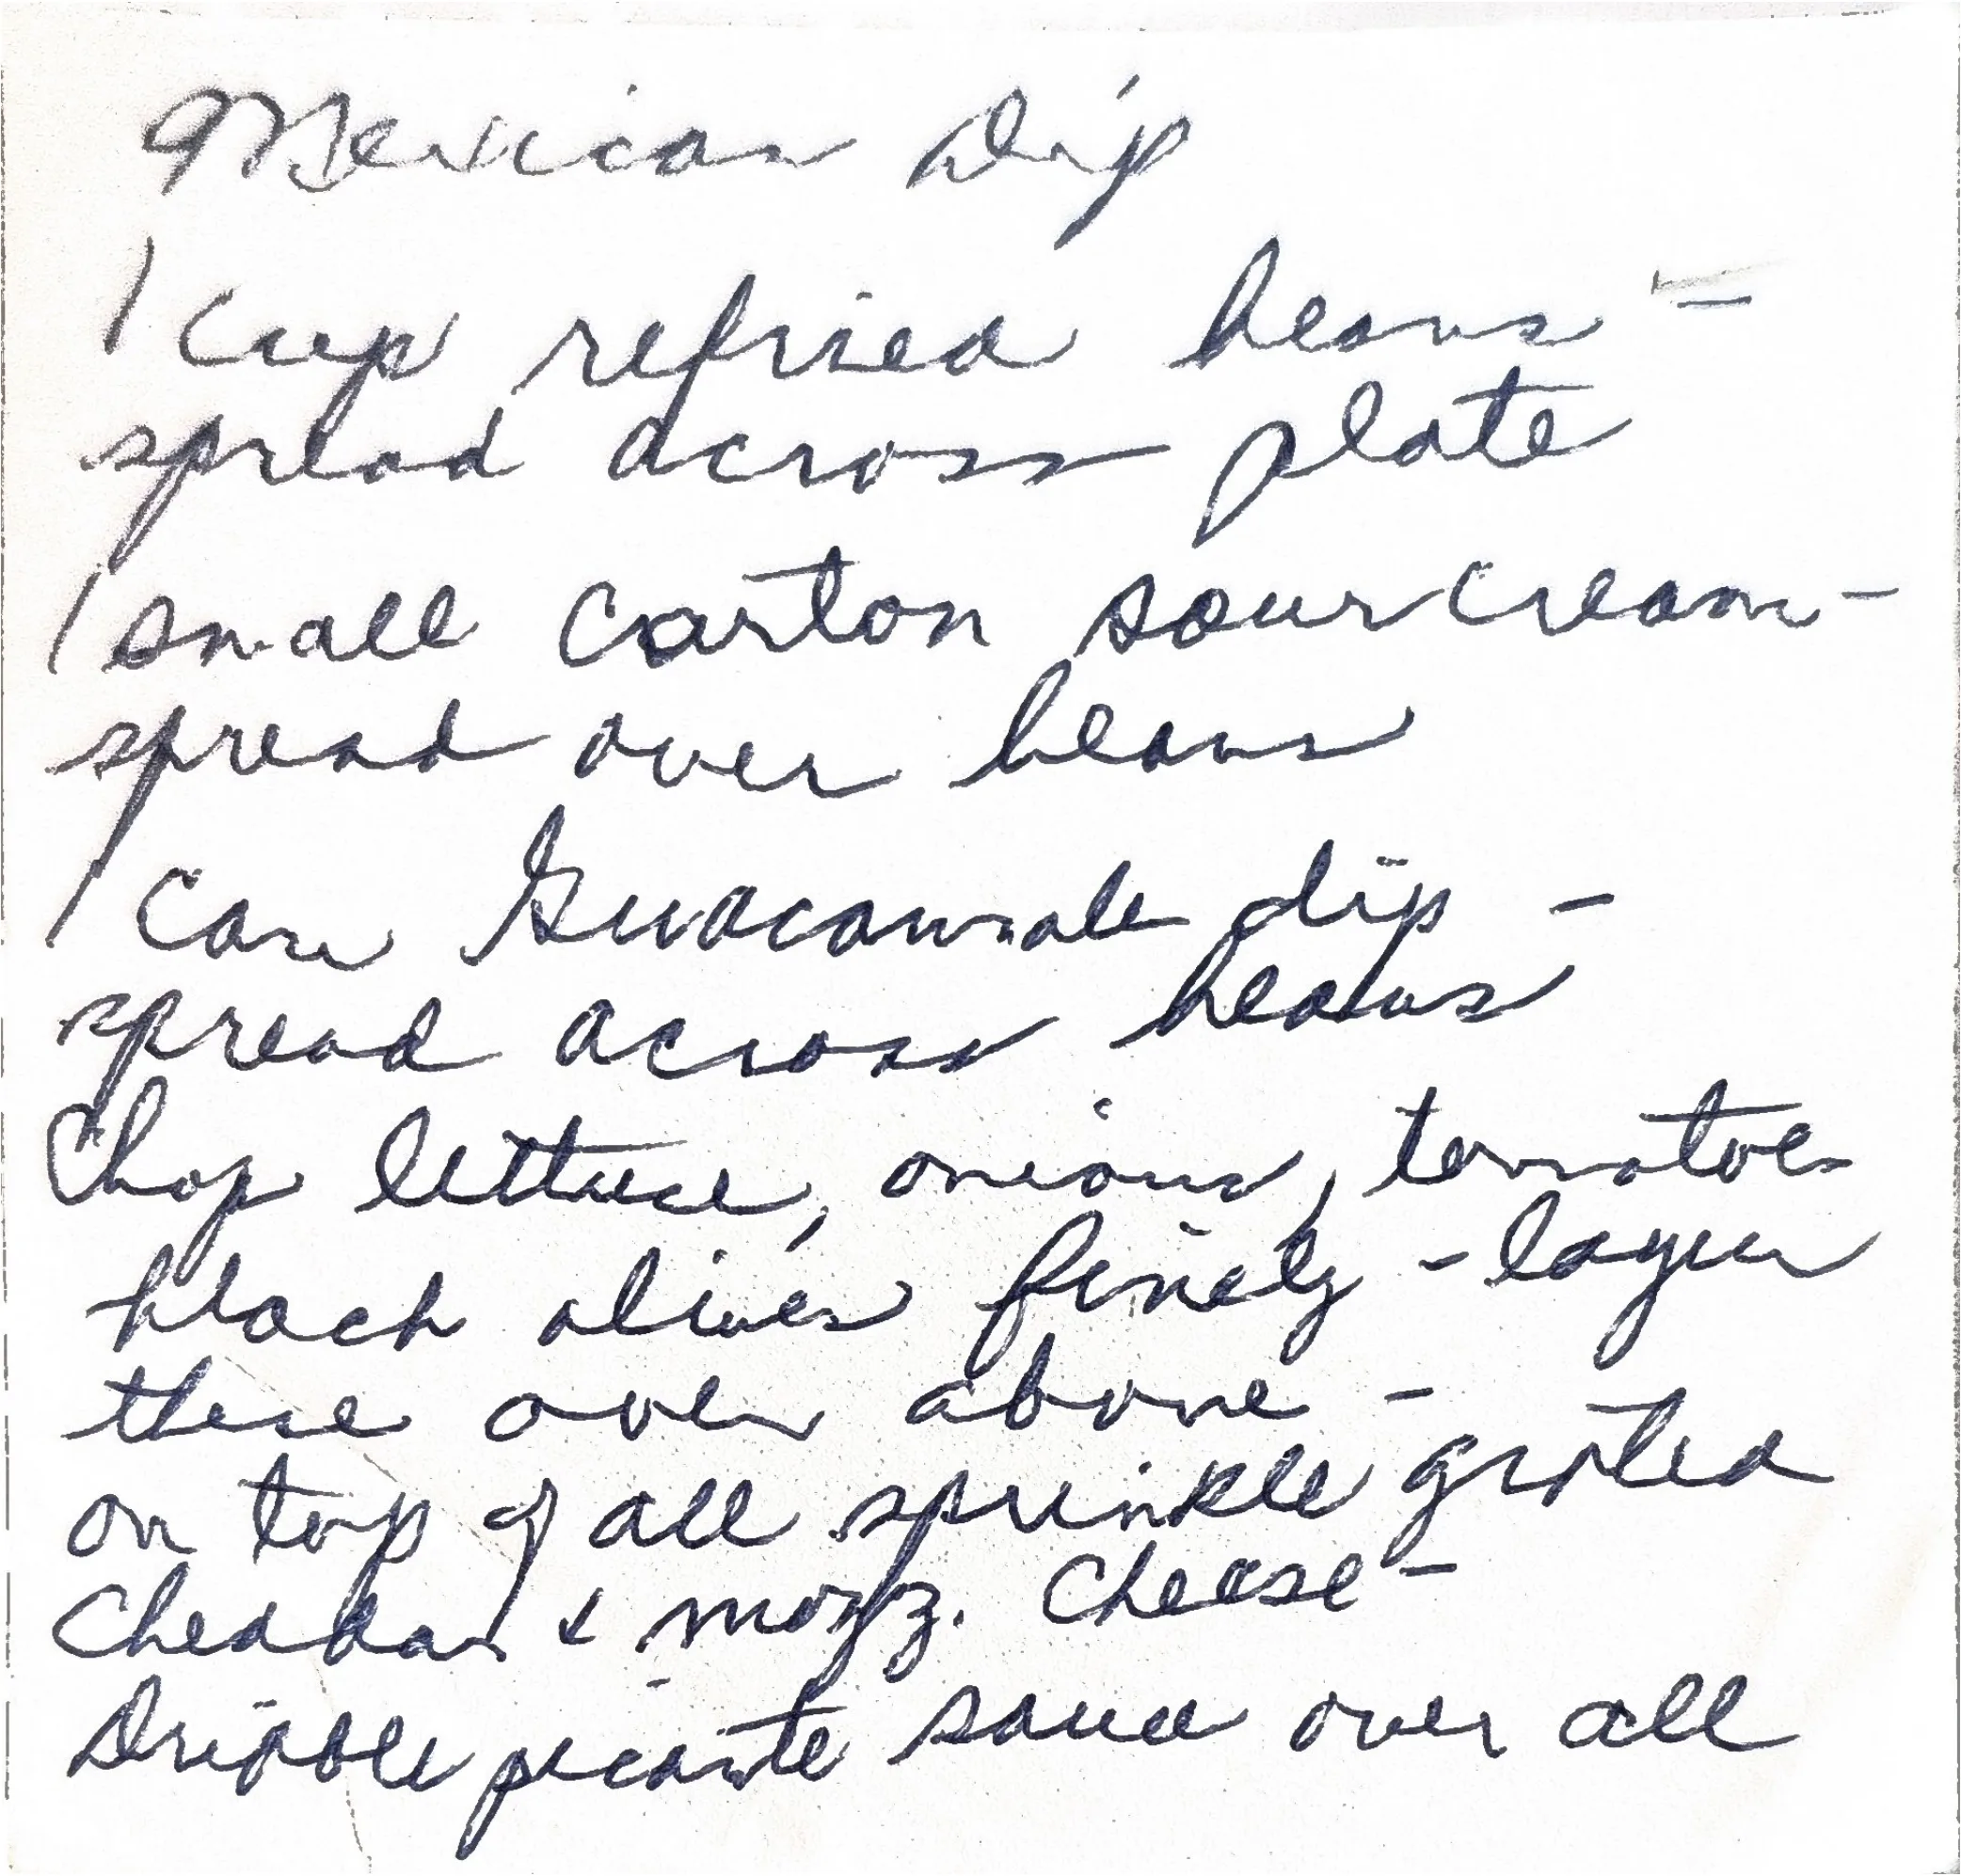 Mexican Dip
1 cup refried beans -
spread across plate
1 small carton sour cream -
spread over beans
1 can Guacamole dip -
spread across beans
Chop lettuce, onions, tomatoes
black olives finely - layer
these over above -
on top of all sprinkle grated
Chedder & mozz. Cheese -
Dribble picante sauce over all